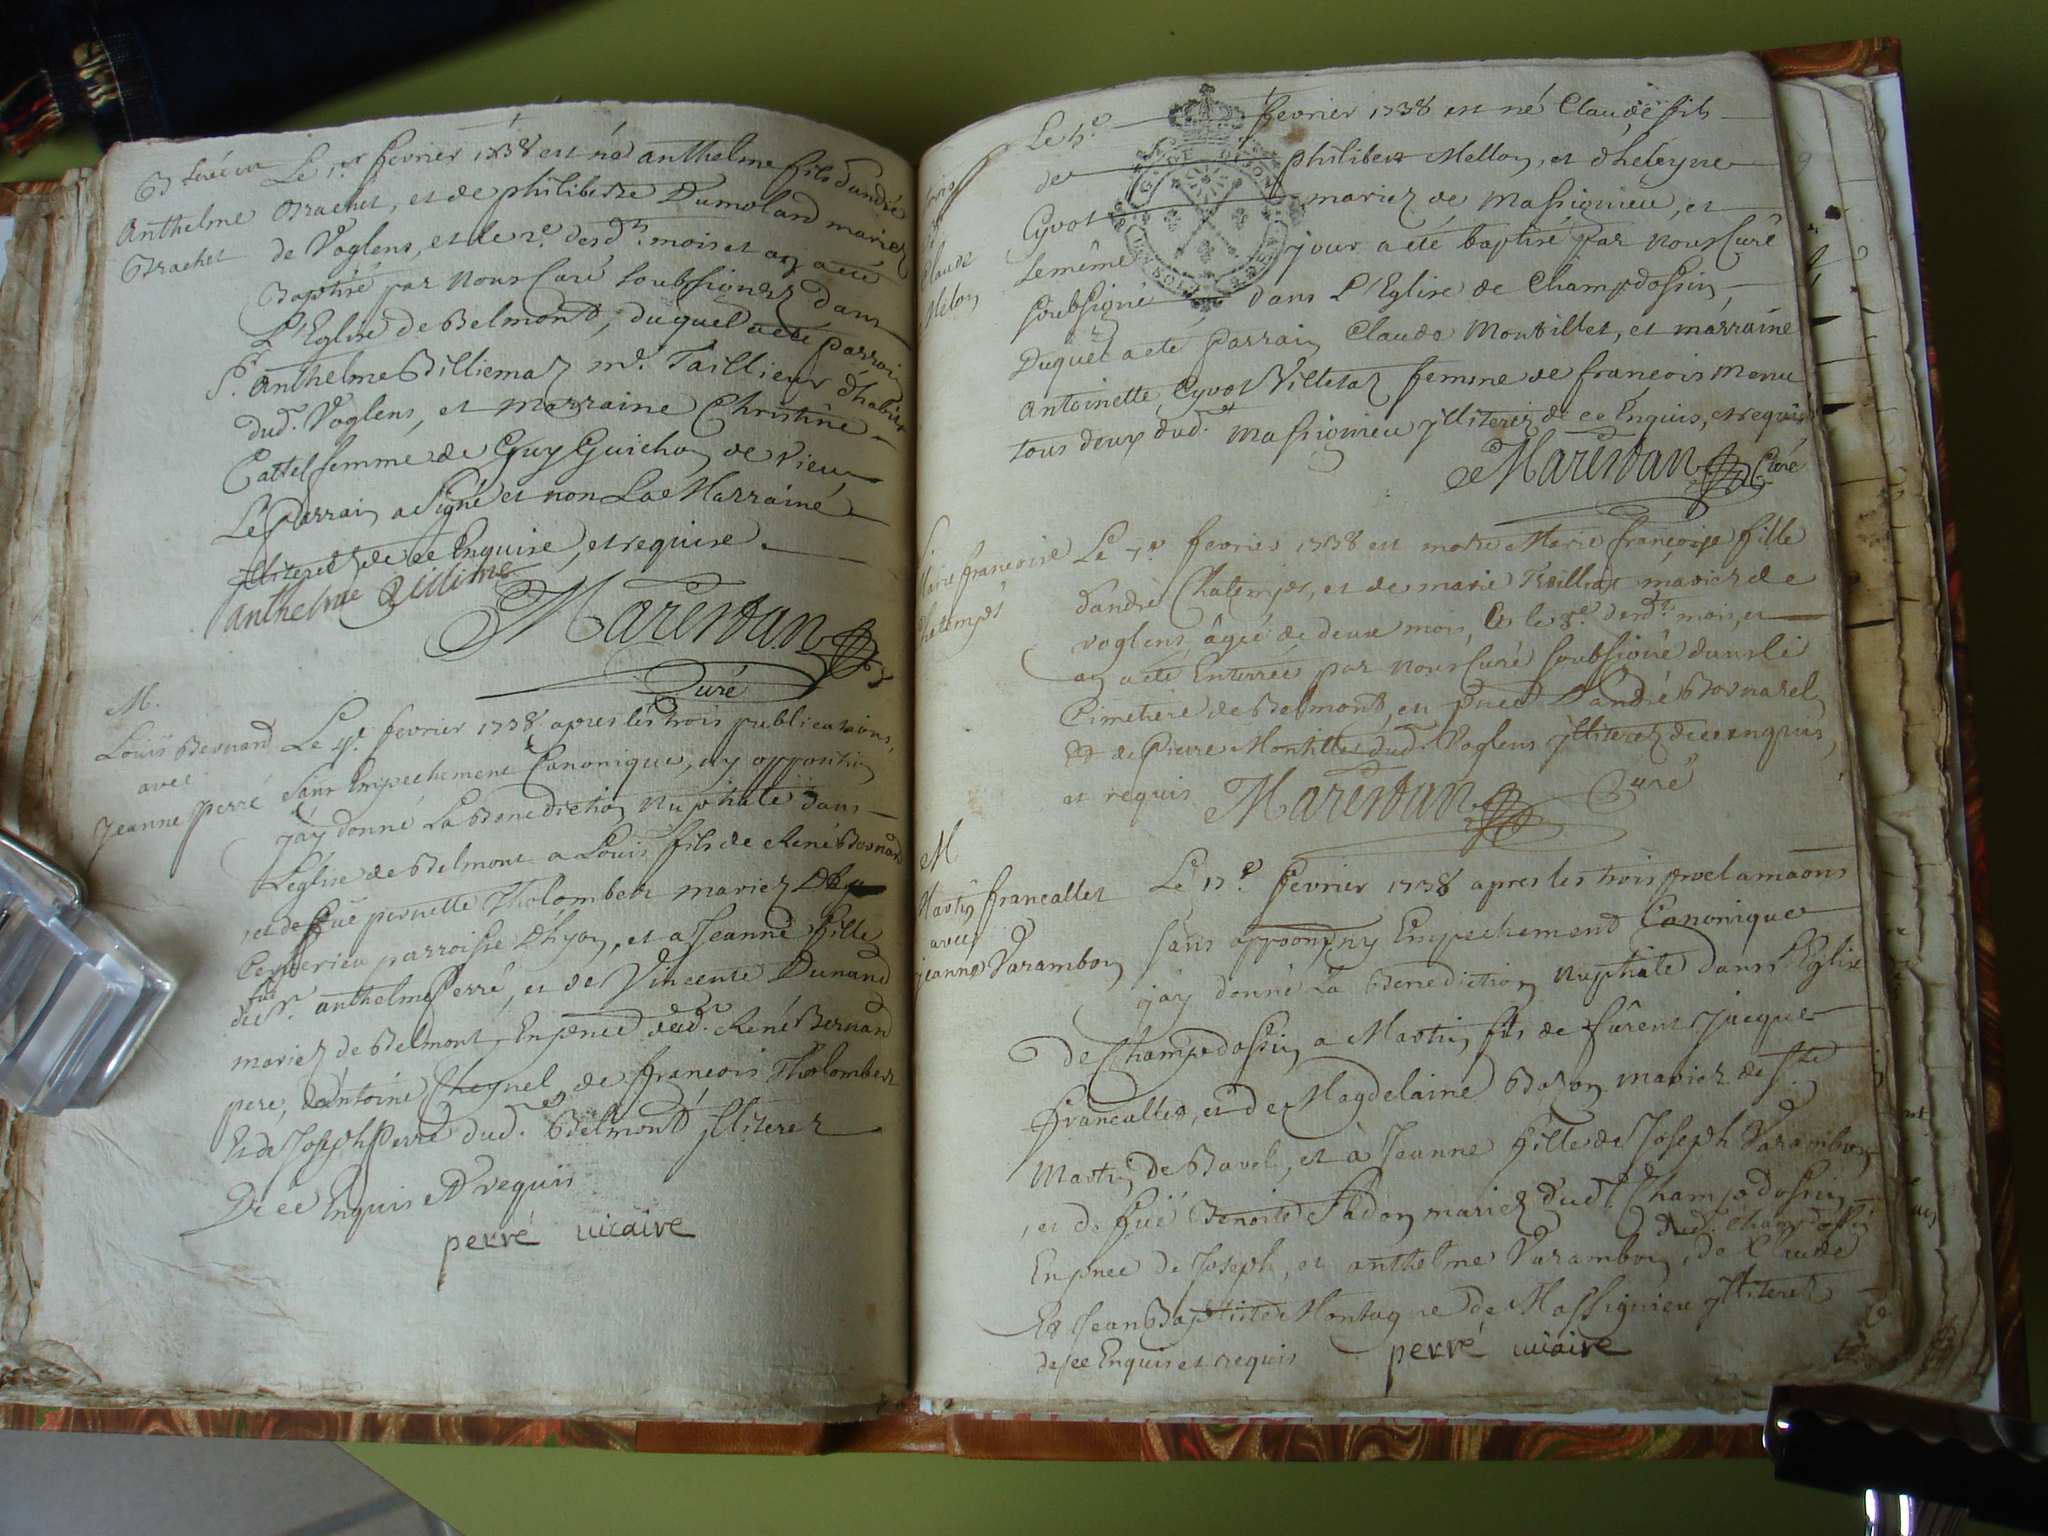 Anthelme
Brachet
Le 1er fevrier 1738 est né anthelme fils d'andré
Brachet, et de philiberte Dumolard mariez
de Voglens, et le 2e. desdts. mois et an a eté
Baptisé par nous Curé soubsignez dans
L'Eglise de Belmont, duquel a eté parrain
Sr. Anthelme Billiemaz me. Taillieur d'habits
dud. Voglens, et marraine Christine
Cattel femme de Guy Guichon de vieu
Le Parrain a signé et non La Marraine
illiterée de ce Enquise, et requise.
anthelme
Marestan
Curé
M.
Louïs Bernard
avec
Jeanne perré
Le 4e. fevrier 1738 apres les trois publications,
sans Empechement Canonique, ny opposition
j'ay donné La Benediction nuptiale dans
L'eglise de Belmont a Louïs fils de René Bernard
, et de fuë pernette Tholomber mariez
parroisse d'hyon, et a Jeanne fille
de fut Sr. anthelme Perré, et de Vincente Dunand
mariez de Belmont, En pnce dud. René Bernard
pere, d'antoine Cheynel, de françois Tholomber
Et de Joseph Perré dud. Belmont illiterez
De ce Enquis et requis
perré vicaire
Claude
Melon
Le 5e fevrier 1738 est né Claude fils
de philibert Mellon, et d'heleyne
Cyvot mariez de Massignieu, et
Le même jour a eté baptisé par nous Curé
soubsigné dans L'Eglise de Champdossin,
Duquel a eté parrain Claude Montillet, et marraine
Antoinette Cyvot Villetaz femme de françois menu
tous deux dud. Massignieu illiterez de ce Enquis, et requis
Marestan Curé
Marie françoise
Chatemps
Le 7e fevrier 1738 est morte Marie françoise fille
d'andré Chatemps, et de marie Trilliat mariez de
voglens, âgée de deux mois, Et le 8e. desdts. mois, et
an a eté Enterrée par nous Curé soubsigné dans le
Cimetiere de Belmont, en pnce d'andré Bornarel
Et de Pierre Montillet dud. Voglens illiterez de ce enquis,
et requis Marestan Curé
M
Martin francallet
avec
jeanne Varambon
Le 17e. fevrier 1738 apres les trois proclamaons
sans opposon, ny Empechement Canonique
j'ay donné La Benediction nuptiale dans L'Eglise
De Champdossin a Martin fils de fûrent Jacque
francallet, et de Magdelaine Bozon mariez de St
Martin de Bavel, et à Jeanne fille de Joseph Varambon
, et de fuë Benoite Fadon mariez dudt. Champdossin
En pnce de Joseph, et anthelme Varambon dud. Champdossin, de Claude
Et Jean Baptiste Montagne de Massignieu illiterez
de ce Enquis et requis perré vicaire